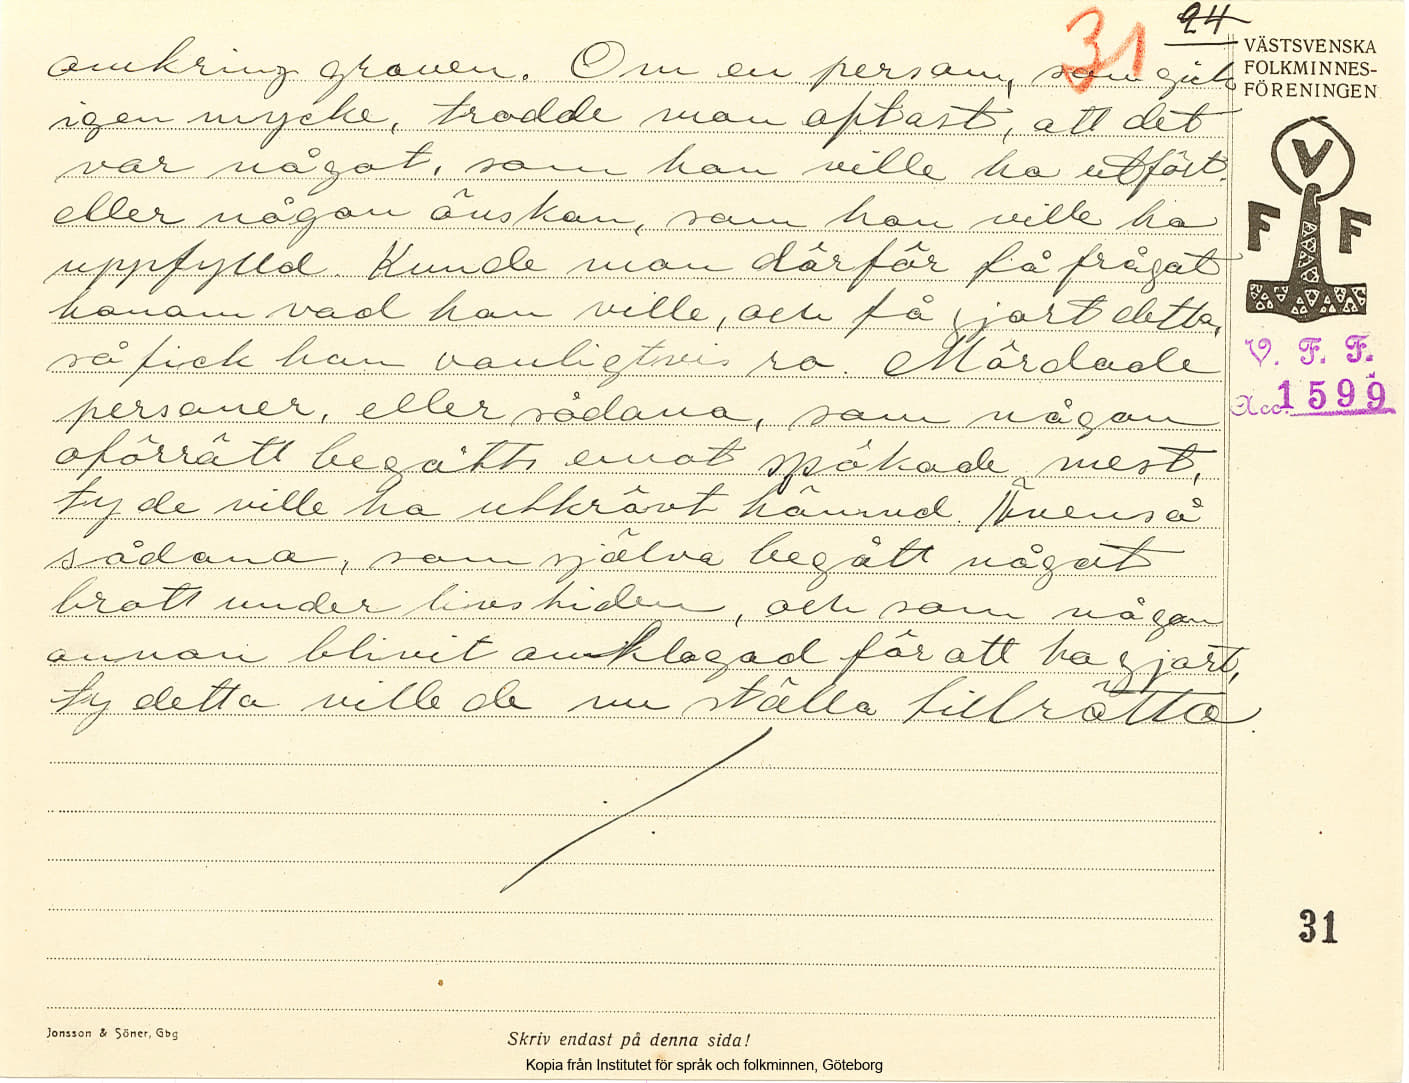 31
24
VÄSTSVENSKA
FOLKMINNES-
FÖRENINGEN
omkring graven. Om en person, som gick
igen mycke, trodde man oftast, att det
var något, som han ville ha utfört.
eller någon önskan, som han ville ha
uppfylld. Kunde man därför få frågat
honom vad han ville, och få gjort detta,
så fick han vanligtvis ro. Mördade
personer, eller sådana, som någon
oförrätt begåtts emot spökade mest,
ty de ville ha utkrävt hämnd. Ävenså
sådana, som själva begått något
brott under livstiden, och som någon
annan blivit anklagad för att ha gjort,
ty detta ville de nu ställa tillrätta.
V
F F
V. F. F.
Acc. 1599
31
Jonsson & Söner, Gbg
Skriv endast på denna sida!
Kopia från Institutet för språk och folkminnen, Göteborg